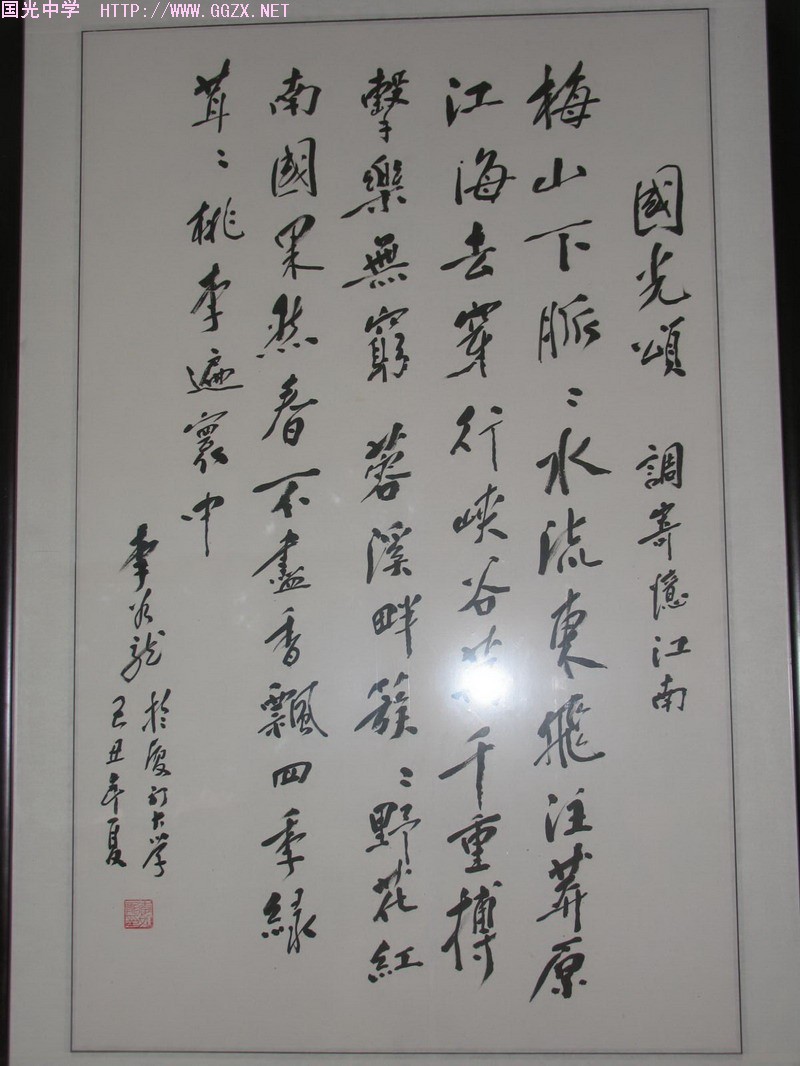 国光中学 HTTP://WWW.GGZX.NET
國光頌 調寄憶江南
梅山下脈〻水流東飛注莽原
江海去穿行峽谷千重搏
擊樂無窮 蓉溪畔簇〻野花紅
南國果然春不盡香飄四季綠
茸〻桃李遍寰中
李龍
於廈门大学
己丑年夏